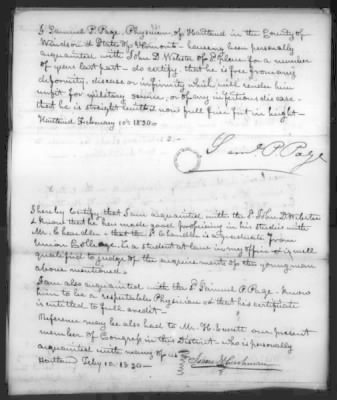 I Samuel P. Page, Physician, of Hartland in the County of
Windsor & State of Vermont - having been personally
acquainted with John D. Webster of S. place for a number
of years last past - do certify that he is free from any
deformity, disease or infirmity which will render him
unfit for military service, or of any infectious disease -
that he is straight limbed now full five feet in height -
Hartland February 10th 1830 -
Saml. P. Page
I hereby certify that I am acquainted with the sd John D. Webster
& know that he has made good proficiency in his studies with
Mr. Chandler - that the sd Chandler is a graduate from
Union College, is a student at law in my office & is well
qualified to judge of the acquirements of the young man
above mentioned.
I am also acquainted with the sd Samuel P. Page - know
him to be a respectable Physician & that his certificate
is entitled to full credit -
Reference may be also had to Mr. H. Everett our present
member of Congress in this District - who is personally
acquainted with many of us
Hartland Feby 10. 1830 - Isaac N. Cushman